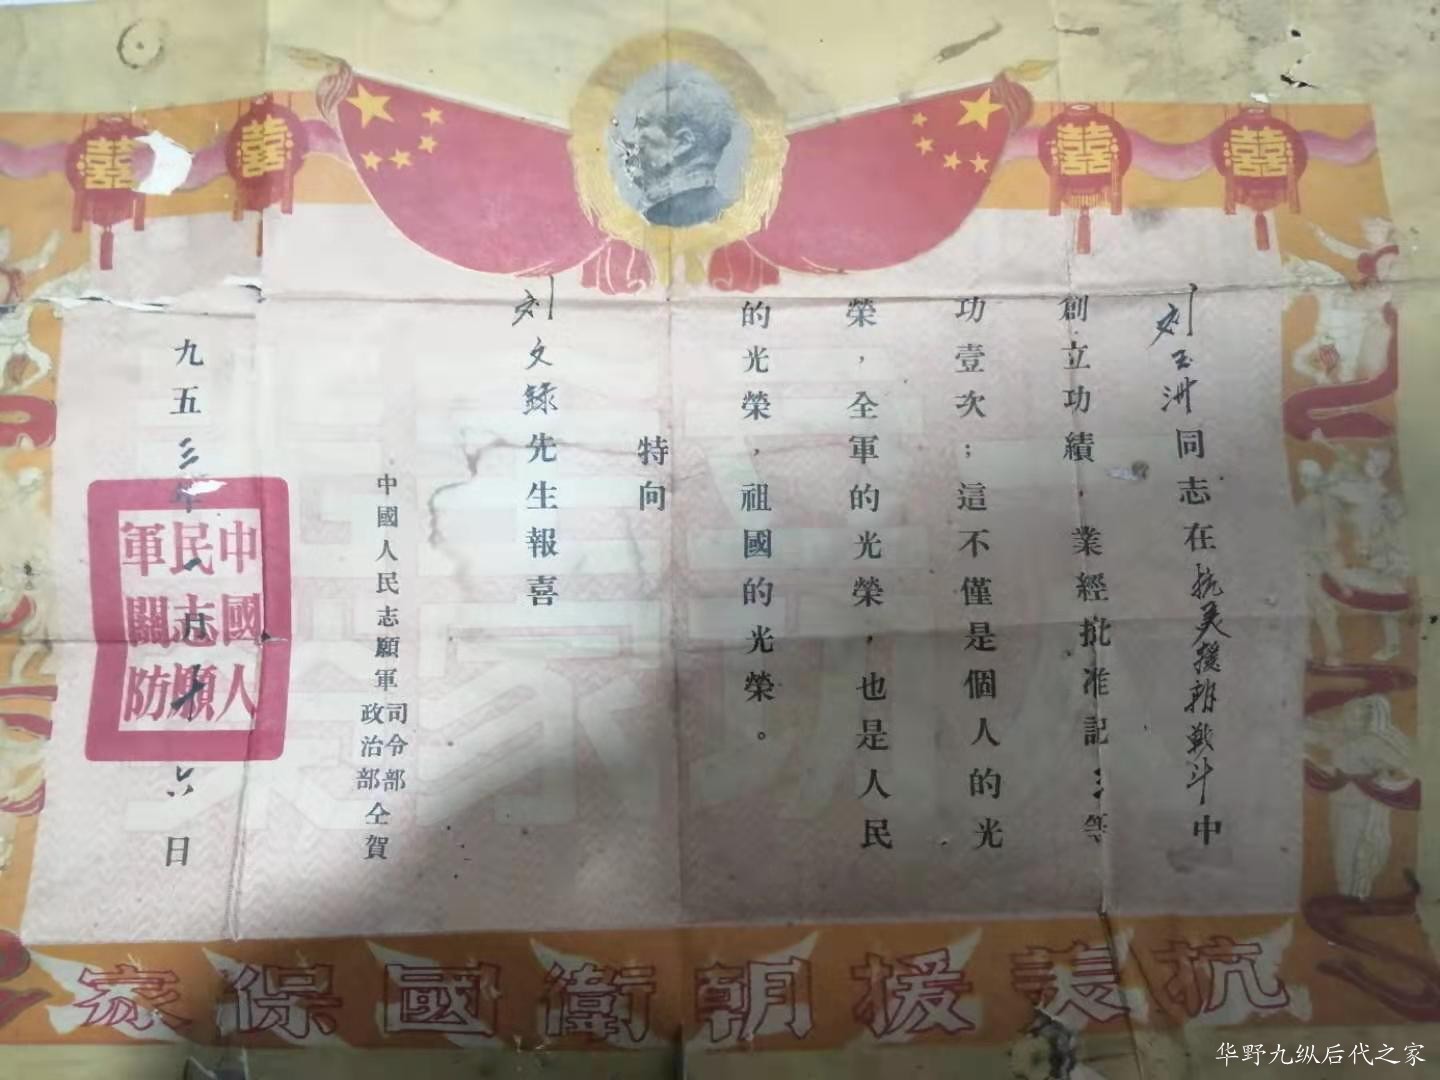 囍
囍
囍
囍
刘玉洲同志在抗美援朝战斗中
創立功績,業經批准記三等
功壹次；這不僅是個人的光
榮，全軍的光榮，也是人民
的光榮，祖國的光榮。
特向
刘文録先生報喜
中國人民志願軍
司令部
政治部
仝賀
九五三年一月十六日
中國人
民志願
軍關防
抗美援朝衛國保家
华野九纵后代之家